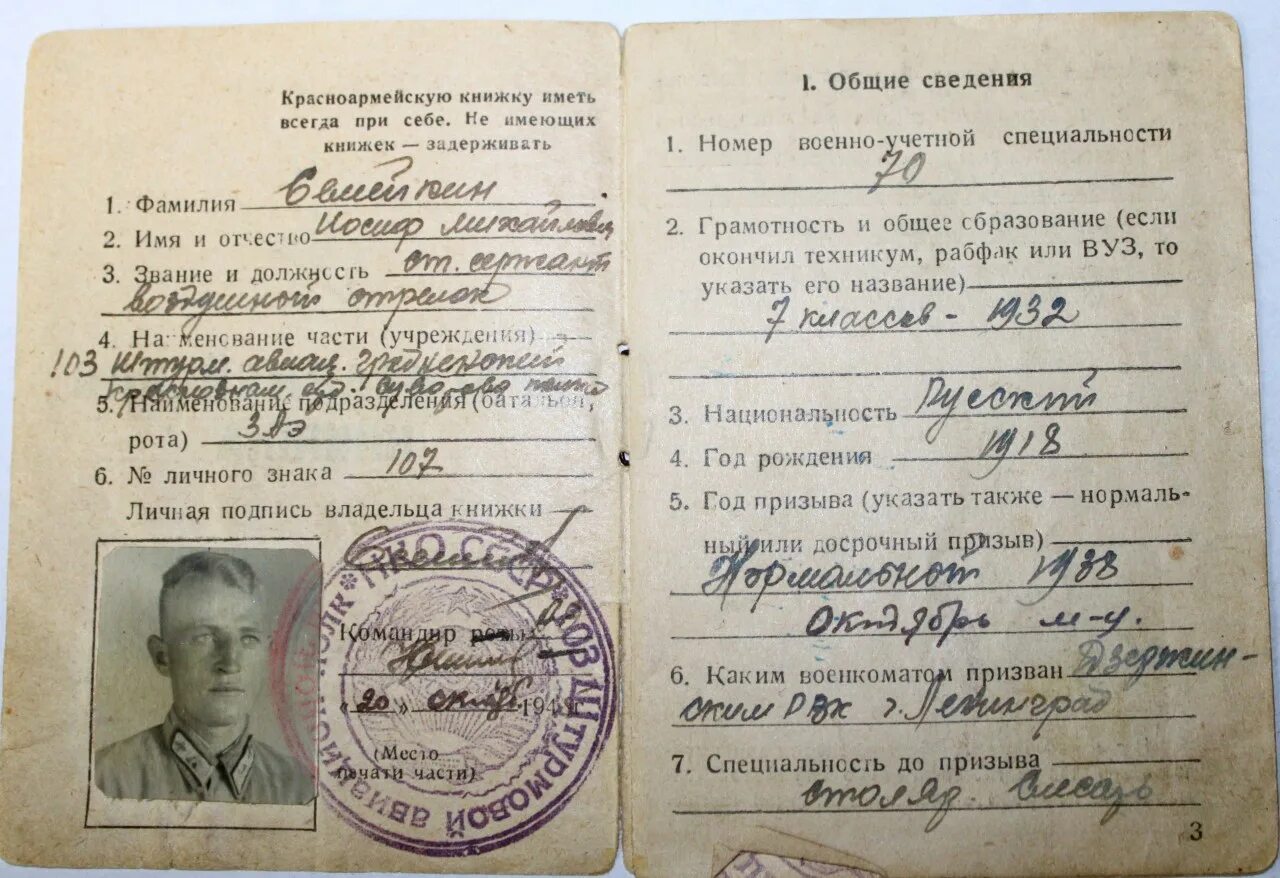 Красноармейскую книжку иметь
всегда при себе. Не имеющих
книжек — задерживать
1. Фамилия Семейкин
2. Имя и отчество Иосиф Михайлович
3. Звание и должность ст. сержант
воздушный стрелок
4. Наименование части (учреждения)
103 Штурм. авиац.
5. Наименование подразделения (батальон,
рота) 3 АЭ
6. № личного знака 107
Личная подпись владельца книжки
Командир роты
«20» октяб 194
(Место
печати части)
НКО СССР * 103 ШТУРМОВОЙ АВИАЦИОННЫЙ ПОЛК *
I. Общие сведения
1. Номер военно-учетной специальности
70
2. Грамотность и общее образование (если
окончил техникум, рабфак или ВУЗ, то
указать его название)
7 классов - 1932
3. Национальность Русский
4. Год рождения 1918
5. Год призыва (указать также — нормаль-
ный или досрочный призыв)
Нормальный 1938
октябрь м-ц.
6. Каким военкоматом призван Дзержин-
ским РВК г. Ленинград
7. Специальность до призыва
столяр. слесарь
3